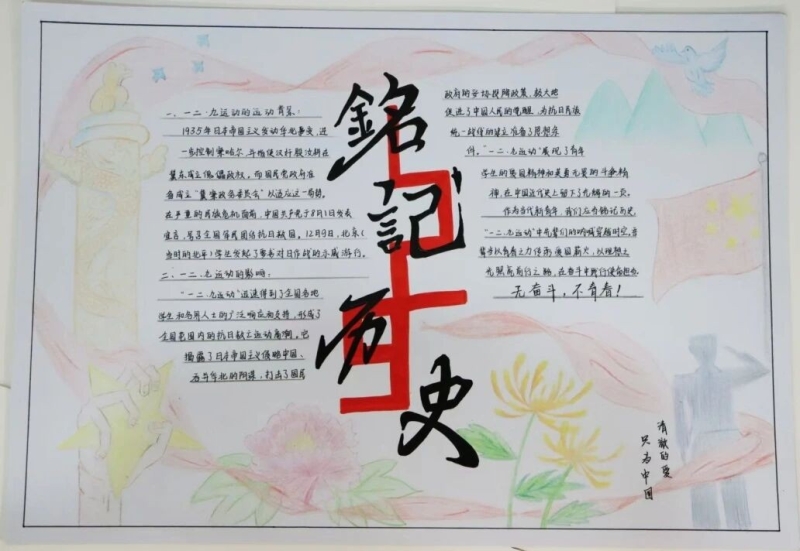 銘記历史
一、一二·九运动的运动背景:
1935年日本帝国主义发动华北事变,进
一步控制察哈尔,并指使汉奸殷汝耕在
冀东成立傀儡政权,而国民党政府准
备成立“冀察政务委员会”以适应这一局势。
在严重的民族危机面前,中国共产党于8月1日发表
宣言,号召全国各民团结抗日救国。12月9日,北京(
当时的北平)学生发起了要求对日作战的示威游行。
二、一二·九运动的影响:
“一二·九运动”迅速得到了全国各地
学生和各界人士的广泛响应和支持,形成了
全国范围内的抗日救亡运动高潮。它
揭露了日本帝国主义侵略中国、
吞并华北的阴谋,打击了国民
政府的妥协投降政策,极大地
促进了中国人民的觉醒,为抗日民族
统一战线的建立准备了思想条
件。“一二·九运动”展现了青年
学生的爱国精神和英勇无畏的斗争精
神,在中国近代史上留下了光辉的一页。
作为当代新青年,我们应当铭记历史,
“一二·九运动”中先辈们的呐喊穿越时空,吾
辈当以青春之力传承爱国薪火,以理想之
光照亮前行之路,在奋斗中践行使命担当
无奋斗,不青春!
清澈的爱
只为中国